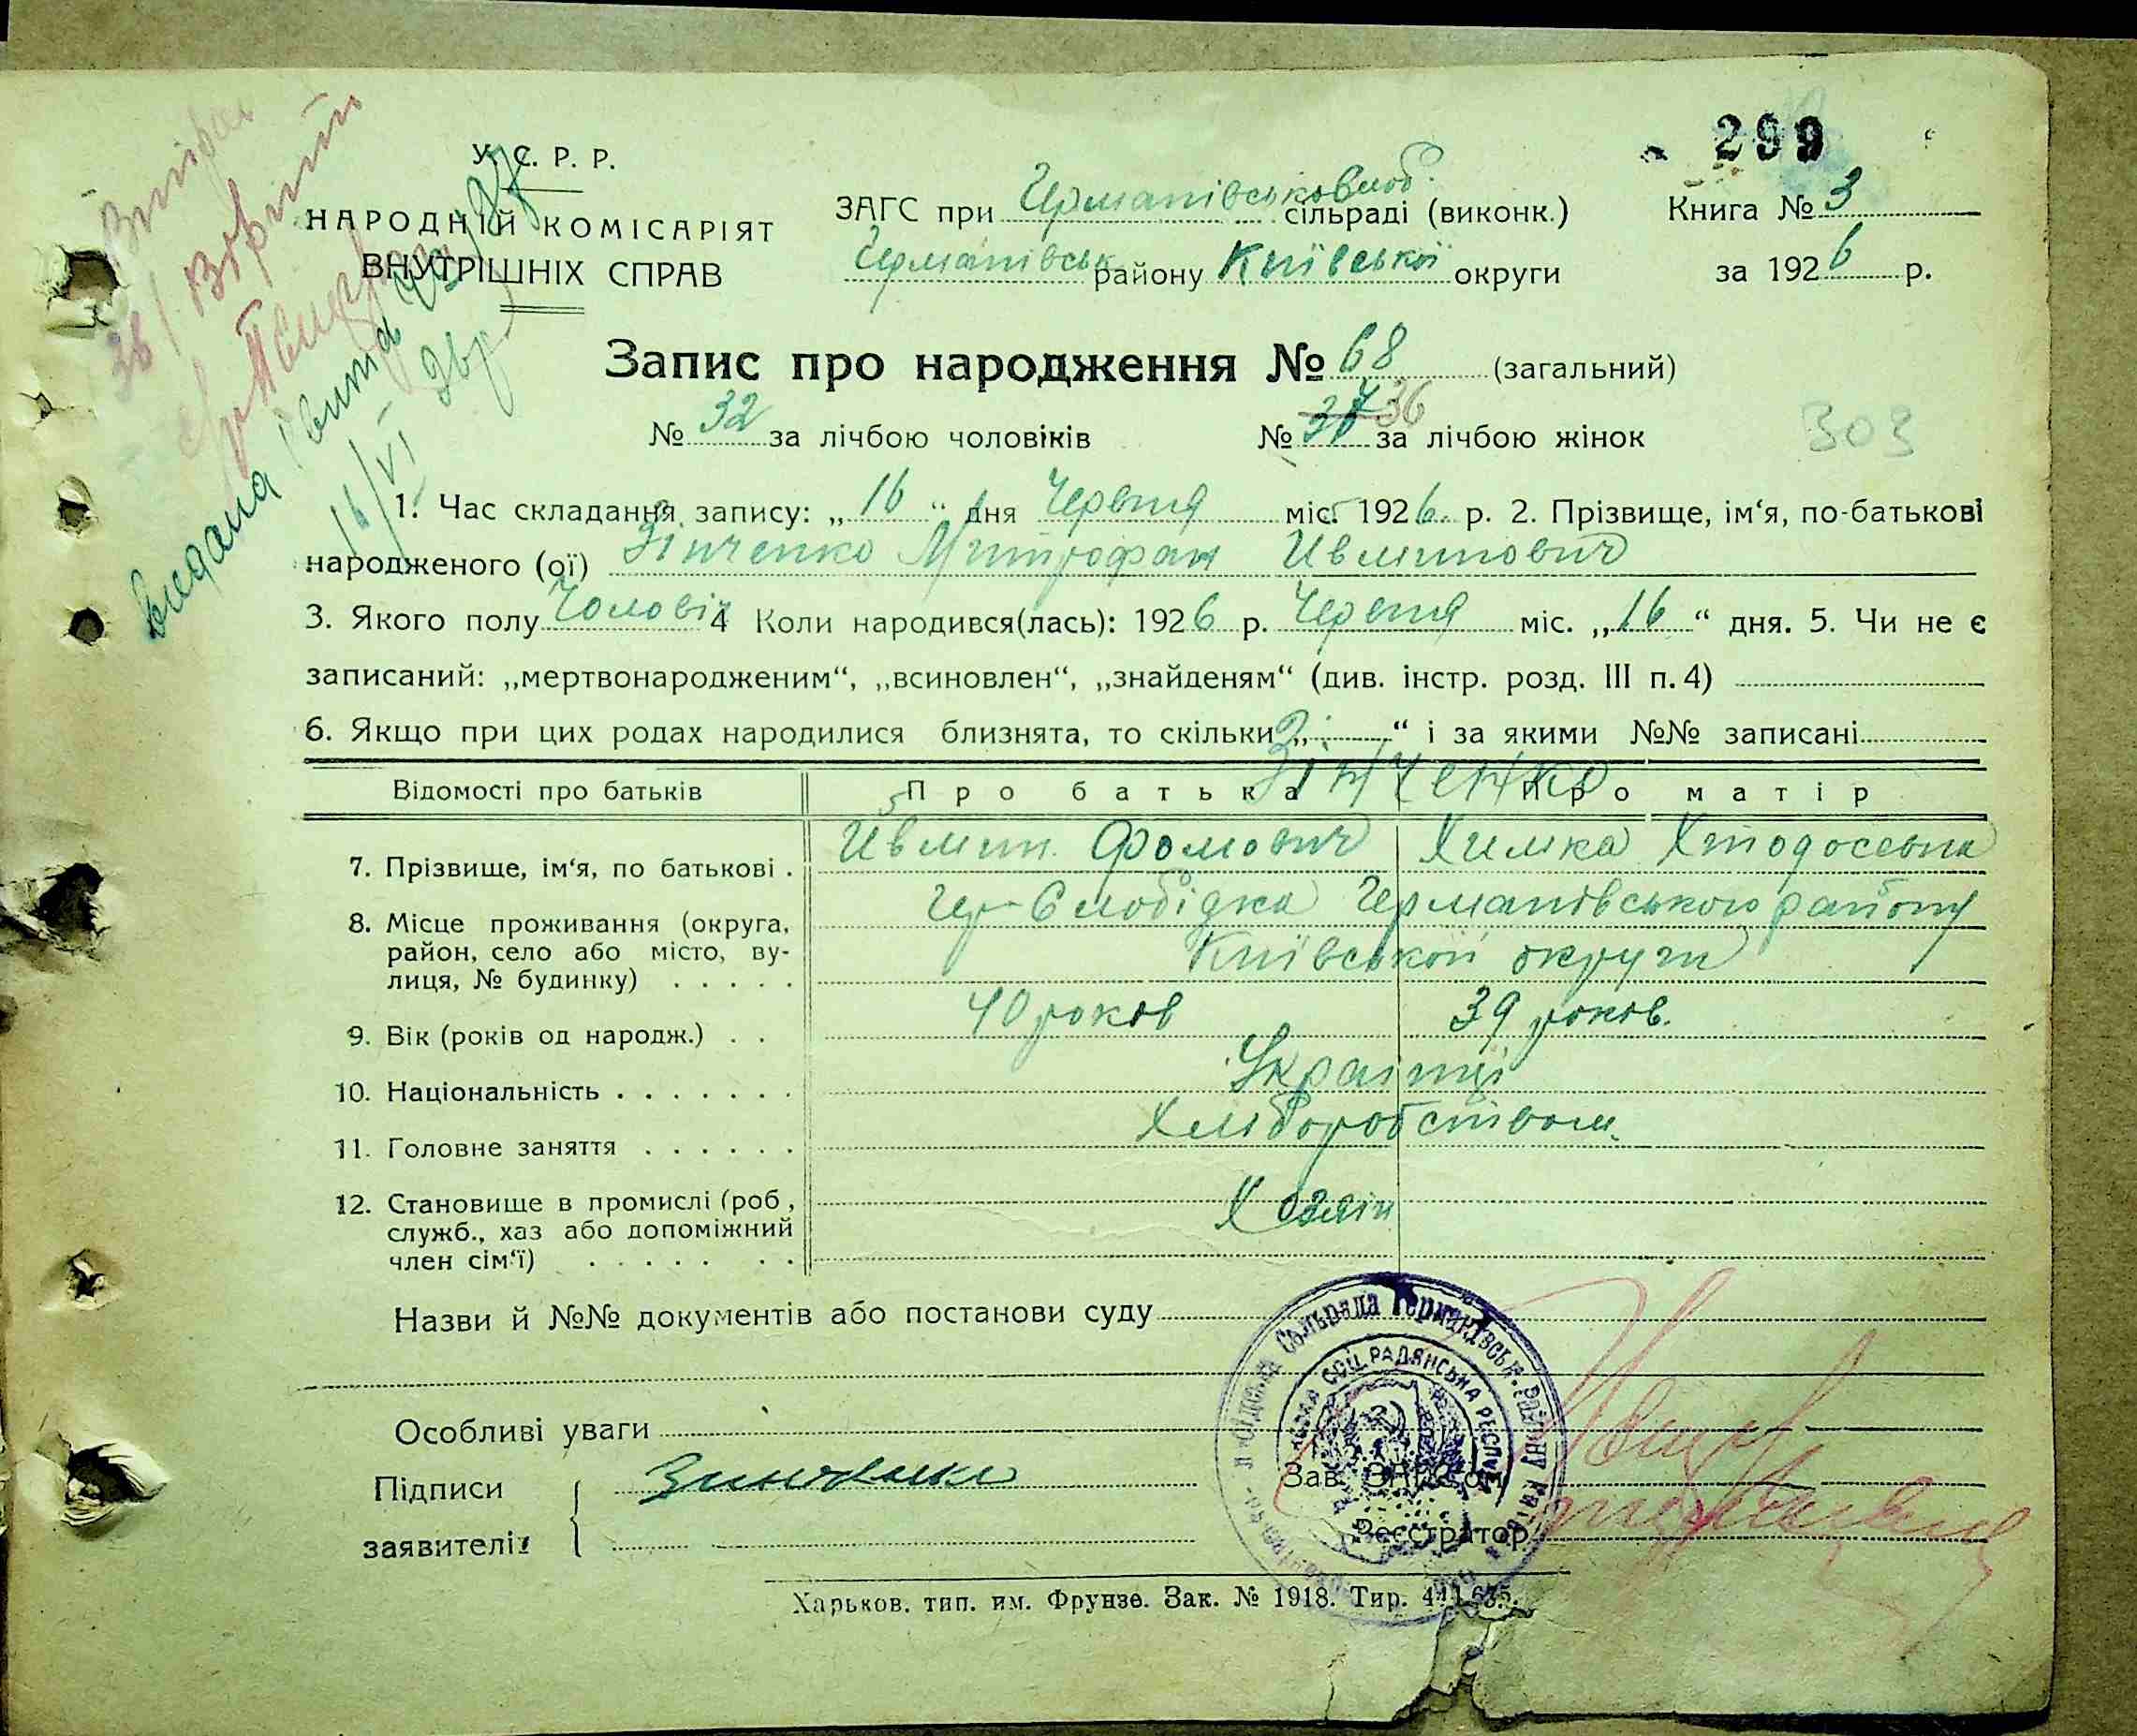 299
У. С. Р. Р.
НАРОДНІЙ КОМІСАРІЯТ
ВНУТРІШНІХ СПРАВ
ЗАГС при Германівсько слоб. сільраді (виконк.)
Германівськ району Київської округи
Книга № 3
за 1926 р.
Запис про народження № 68 (загальний)
№ 32 за лічбою чоловіків № 36 за лічбою жінок
303
1. Час складання запису: „ 16 “ дня Червня міс. 1926. р. 2. Прізвище, ім‘я, по-батькові
народженого (ої) Зінченко Митрофан Ивминович
3. Якого полу Чоловіч 4 Коли народився(лась): 1926 р. Червня міс. „ 16 “ дня. 5. Чи не є
записаний: „мертвонародженим“, „всиновлен“, „знайденям“ (див. інстр. розд. III п. 4)
6. Якщо при цих родах народилися близнята, то скільки „ “ і за якими №№ записані
Зінченко
Відомості про батьків Про батька Про матір
7. Прізвище, ім‘я, по батькові . Ивмин Фомович Химка Хтодосевна
8. Місце проживання (округа,
район, село або місто, ву-
лиця, № будинку) . . . . .
Гер-Слобідка Германівського району
Київськой округи
9. Вік (років од народж.) . . 40 роков 39 роков.
10. Національність . . . . . . . Українці
11. Головне заняття . . . . . . Хліборобством.
12. Становище в промислі (роб,
служб., хаз або допоміжний
член сім‘ї) . . . . . . .
Хозяін
Назви й №№ документів або постанови суду
Особливі уваги
Підписи
заявителів
Зав. ЗАГС‘ом
Реєстратор
Сільрада Германівськ. Району Київ
СОЦ. РАДЯНСЬКА РЕСП
Харьков. тип. им. Фрунзе. Зак. № 1918. Тир. 441.675.
видана
16/VI